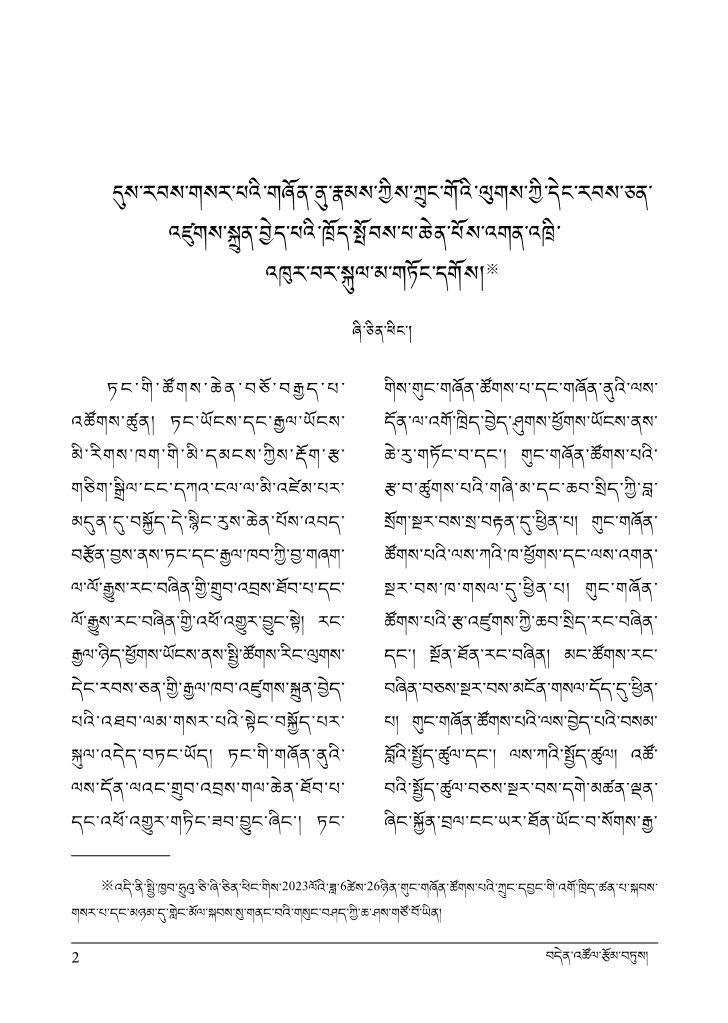 དུས་རབས་གསར་པའི་གཞོན་ནུ་རྣམས་ཀྱིས་ཀྲུང་གོའི་ལུགས་ཀྱི་དེང་རབས་ཅན་
འཛུགས་སྐྲུན་བྱེད་པའི་ཁྲོད་སྤོབས་པ་ཆེན་པོས་འགན་འཁྲི་
འཁུར་བར་སྐུལ་མ་གཏོང་དགོས།※
ཞི་ཅིན་ཕིང་།
ཏང་གི་ཚོགས་ཆེན་བཅོ་བརྒྱད་པ་
འཚོགས་ཚུན། ཏང་ཡོངས་དང་རྒྱལ་ཡོངས་
མི་རིགས་ཁག་གི་མི་དམངས་ཀྱིས་རྡོག་རྩ་
གཅིག་སྒྲིལ་ངང་དཀའ་ངལ་ལ་མི་འཛེམ་པར་
མདུན་དུ་བསྐྱོད་དེ་སྙིང་རུས་ཆེན་པོས་འབད་
བརྩོན་བྱས་ནས་ཏང་དང་རྒྱལ་ཁབ་ཀྱི་བྱ་གཞག་
ལ་ལོ་རྒྱུས་རང་བཞིན་གྱི་གྲུབ་འབྲས་ཐོབ་པ་དང་
ལོ་རྒྱུས་རང་བཞིན་གྱི་འཕོ་འགྱུར་བྱུང་སྟེ། རང་
རྒྱལ་ཉིད་ཕྱོགས་ཡོངས་ནས་སྤྱི་ཚོགས་རིང་ལུགས་
དེང་རབས་ཅན་གྱི་རྒྱལ་ཁབ་འཛུགས་སྐྲུན་བྱེད་
པའི་འཐབ་ལམ་གསར་པའི་སྟེང་བསྐྱོད་པར་
སྐུལ་འདེད་བཏང་ཡོད། ཏང་གི་གཞོན་ནུའི་
ལས་དོན་ལའང་གྲུབ་འབྲས་གལ་ཆེན་ཐོབ་པ་
དང་འཕོ་འགྱུར་གཏིང་ཟབ་བྱུང་ཞིང་། ཏང་
གིས་གུང་གཞོན་ཚོགས་པ་དང་གཞོན་ནུའི་ལས་
དོན་ལ་འགོ་ཁྲིད་བྱེད་ཤུགས་ཕྱོགས་ཡོངས་ནས་
ཆེ་རུ་གཏོང་བ་དང་། གུང་གཞོན་ཚོགས་པའི་
རྩ་བ་ཚུགས་པའི་གཞི་མ་དང་ཆབ་སྲིད་ཀྱི་བླ་
སྲོག་སྔར་བས་སྲ་བརྟན་དུ་ཕྱིན་པ། གུང་གཞོན་
ཚོགས་པའི་ལས་ཀའི་ཁ་ཕྱོགས་དང་ལས་འགན་
སྔར་བས་ཁ་གསལ་དུ་ཕྱིན་པ། གུང་གཞོན་
ཚོགས་པའི་རྩ་འཛུགས་ཀྱི་ཆབ་སྲིད་རང་བཞིན་
དང་། སྔོན་ཐོན་རང་བཞིན། མང་ཚོགས་རང་
བཞིན་བཅས་སྔར་བས་མངོན་གསལ་དོད་དུ་ཕྱིན་
པ། གུང་གཞོན་ཚོགས་པའི་ལས་བྱེད་པའི་བསམ་
བློའི་སྤྱོད་ཚུལ་དང་། ལས་ཀའི་སྤྱོད་ཚུལ། འཚོ་
བའི་སྤྱོད་ཚུལ་བཅས་སྔར་བས་དགེ་མཚན་ལྡན་
ཞིང་སྐྱོན་བྲལ་ངང་ཡར་ཐོན་ཡོང་བ་སོགས་རྒྱ་
※འདི་ནི་སྤྱི་ཁྱབ་ཧྲུའུ་ཅི་ཞི་ཅིན་ཕིང་གིས་2023ལོའི་ཟླ་6ཚེས་26ཉིན་གུང་གཞོན་ཚོགས་པའི་ཀྲུང་དབྱང་གི་འགོ་ཁྲིད་ཚན་པ་སྐབས་
གསར་པ་དང་མཉམ་དུ་གླེང་མོལ་སྐབས་སུ་གནང་བའི་གསུང་བཤད་ཀྱི་ཆ་ཤས་གཙོ་བོ་ཡིན།
2 བདེན་འཚོལ་རྩོམ་བཏུས།